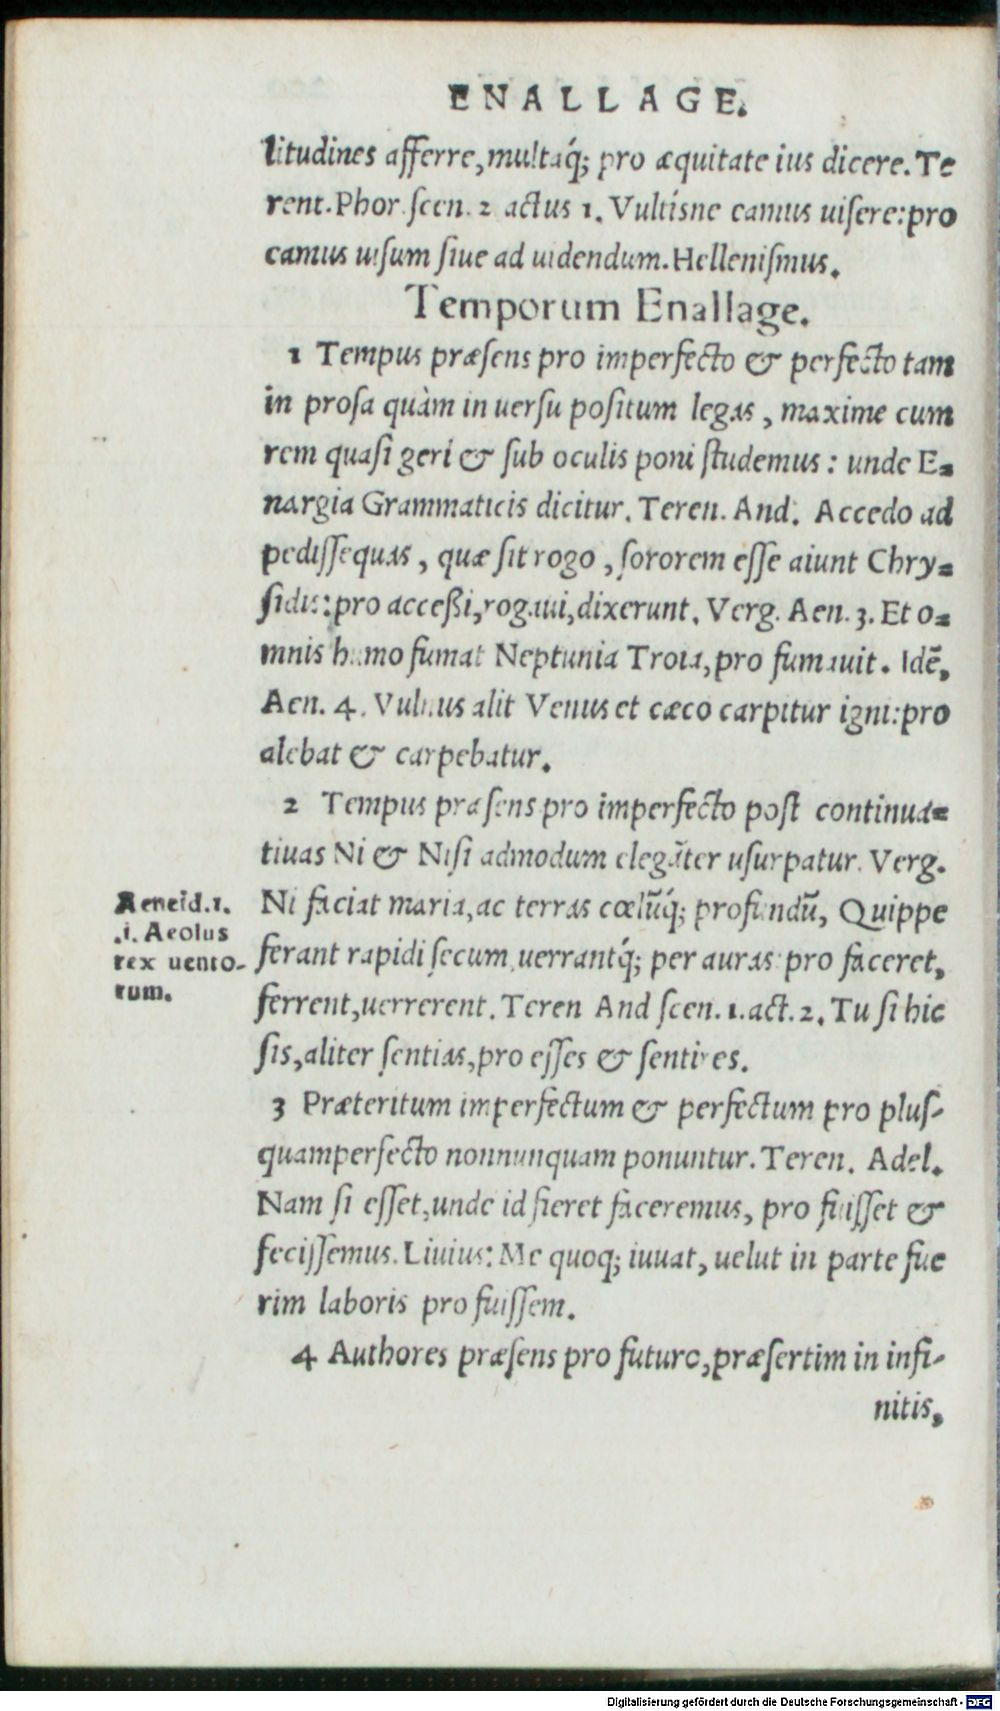 ENALLAGE.
litudines afferre, multaq́; pro æquitate ius dicere. Te
rent. Phor. scen. 2 actus 1. Vultisne eamus uisere: pro
eamus uisum siue ad uidendum. Hellenismus.
Temporum Enallage.
1 Tempus præsens pro imperfecto & perfecto tam
in prosa quàm in uersu positum legas, maxime cum
rem quasi geri & sub oculis poni studemus: unde E=
nargia Grammaticis dicitur. Teren. And. Accedo ad
pedissequas, quæ sit rogo, sororem esse aiunt Chry=
sidis: pro accessi, rogaui, dixerunt. Verg. Aen. 3. Et o=
mnis humo fumat Neptunia Troia, pro fumauit. Idē,
Aen. 4. Vulnus alit Venus et cæco carpitur igni: pro
alebat & carpebatur.
2 Tempus præsens pro imperfecto post continua=
tiuas Ni & Nisi admodum elegāter usurpatur. Verg.
Aeneid.1.
.i. Aeolus
rex uento-
rum.
Ni faciat maria, ac terras cœlūq́; profundū, Quippe
ferant rapidi secum, uerrantq́; per auras: pro faceret,
ferrent, uerrerent. Teren And scen. 1. act. 2. Tu si hic
sis, aliter sentias, pro esses & sentires.
3 Præteritum imperfectum & perfectum pro plus-
quamperfecto nonnunquam ponuntur. Teren. Adel.
Nam si esset, unde id fieret faceremus, pro fuisset &
fecissemus. Liuius: Me quoq; iuuat, uelut in parte fue
rim laboris pro fuissem.
4 Authores præsens pro futuro, præsertim in infi-
nitis,
Digitalisierung gefördert durch die Deutsche Forschungsgemeinschaft - DFG